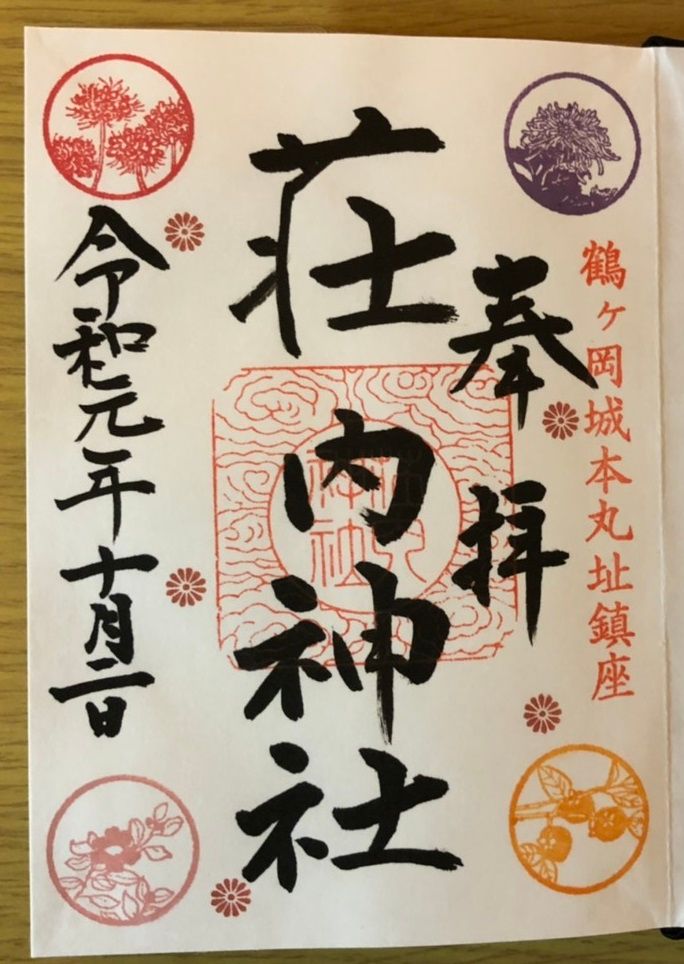 鶴ヶ岡城本丸址鎮座
奉拝
荘内神社
令和元年十月二日